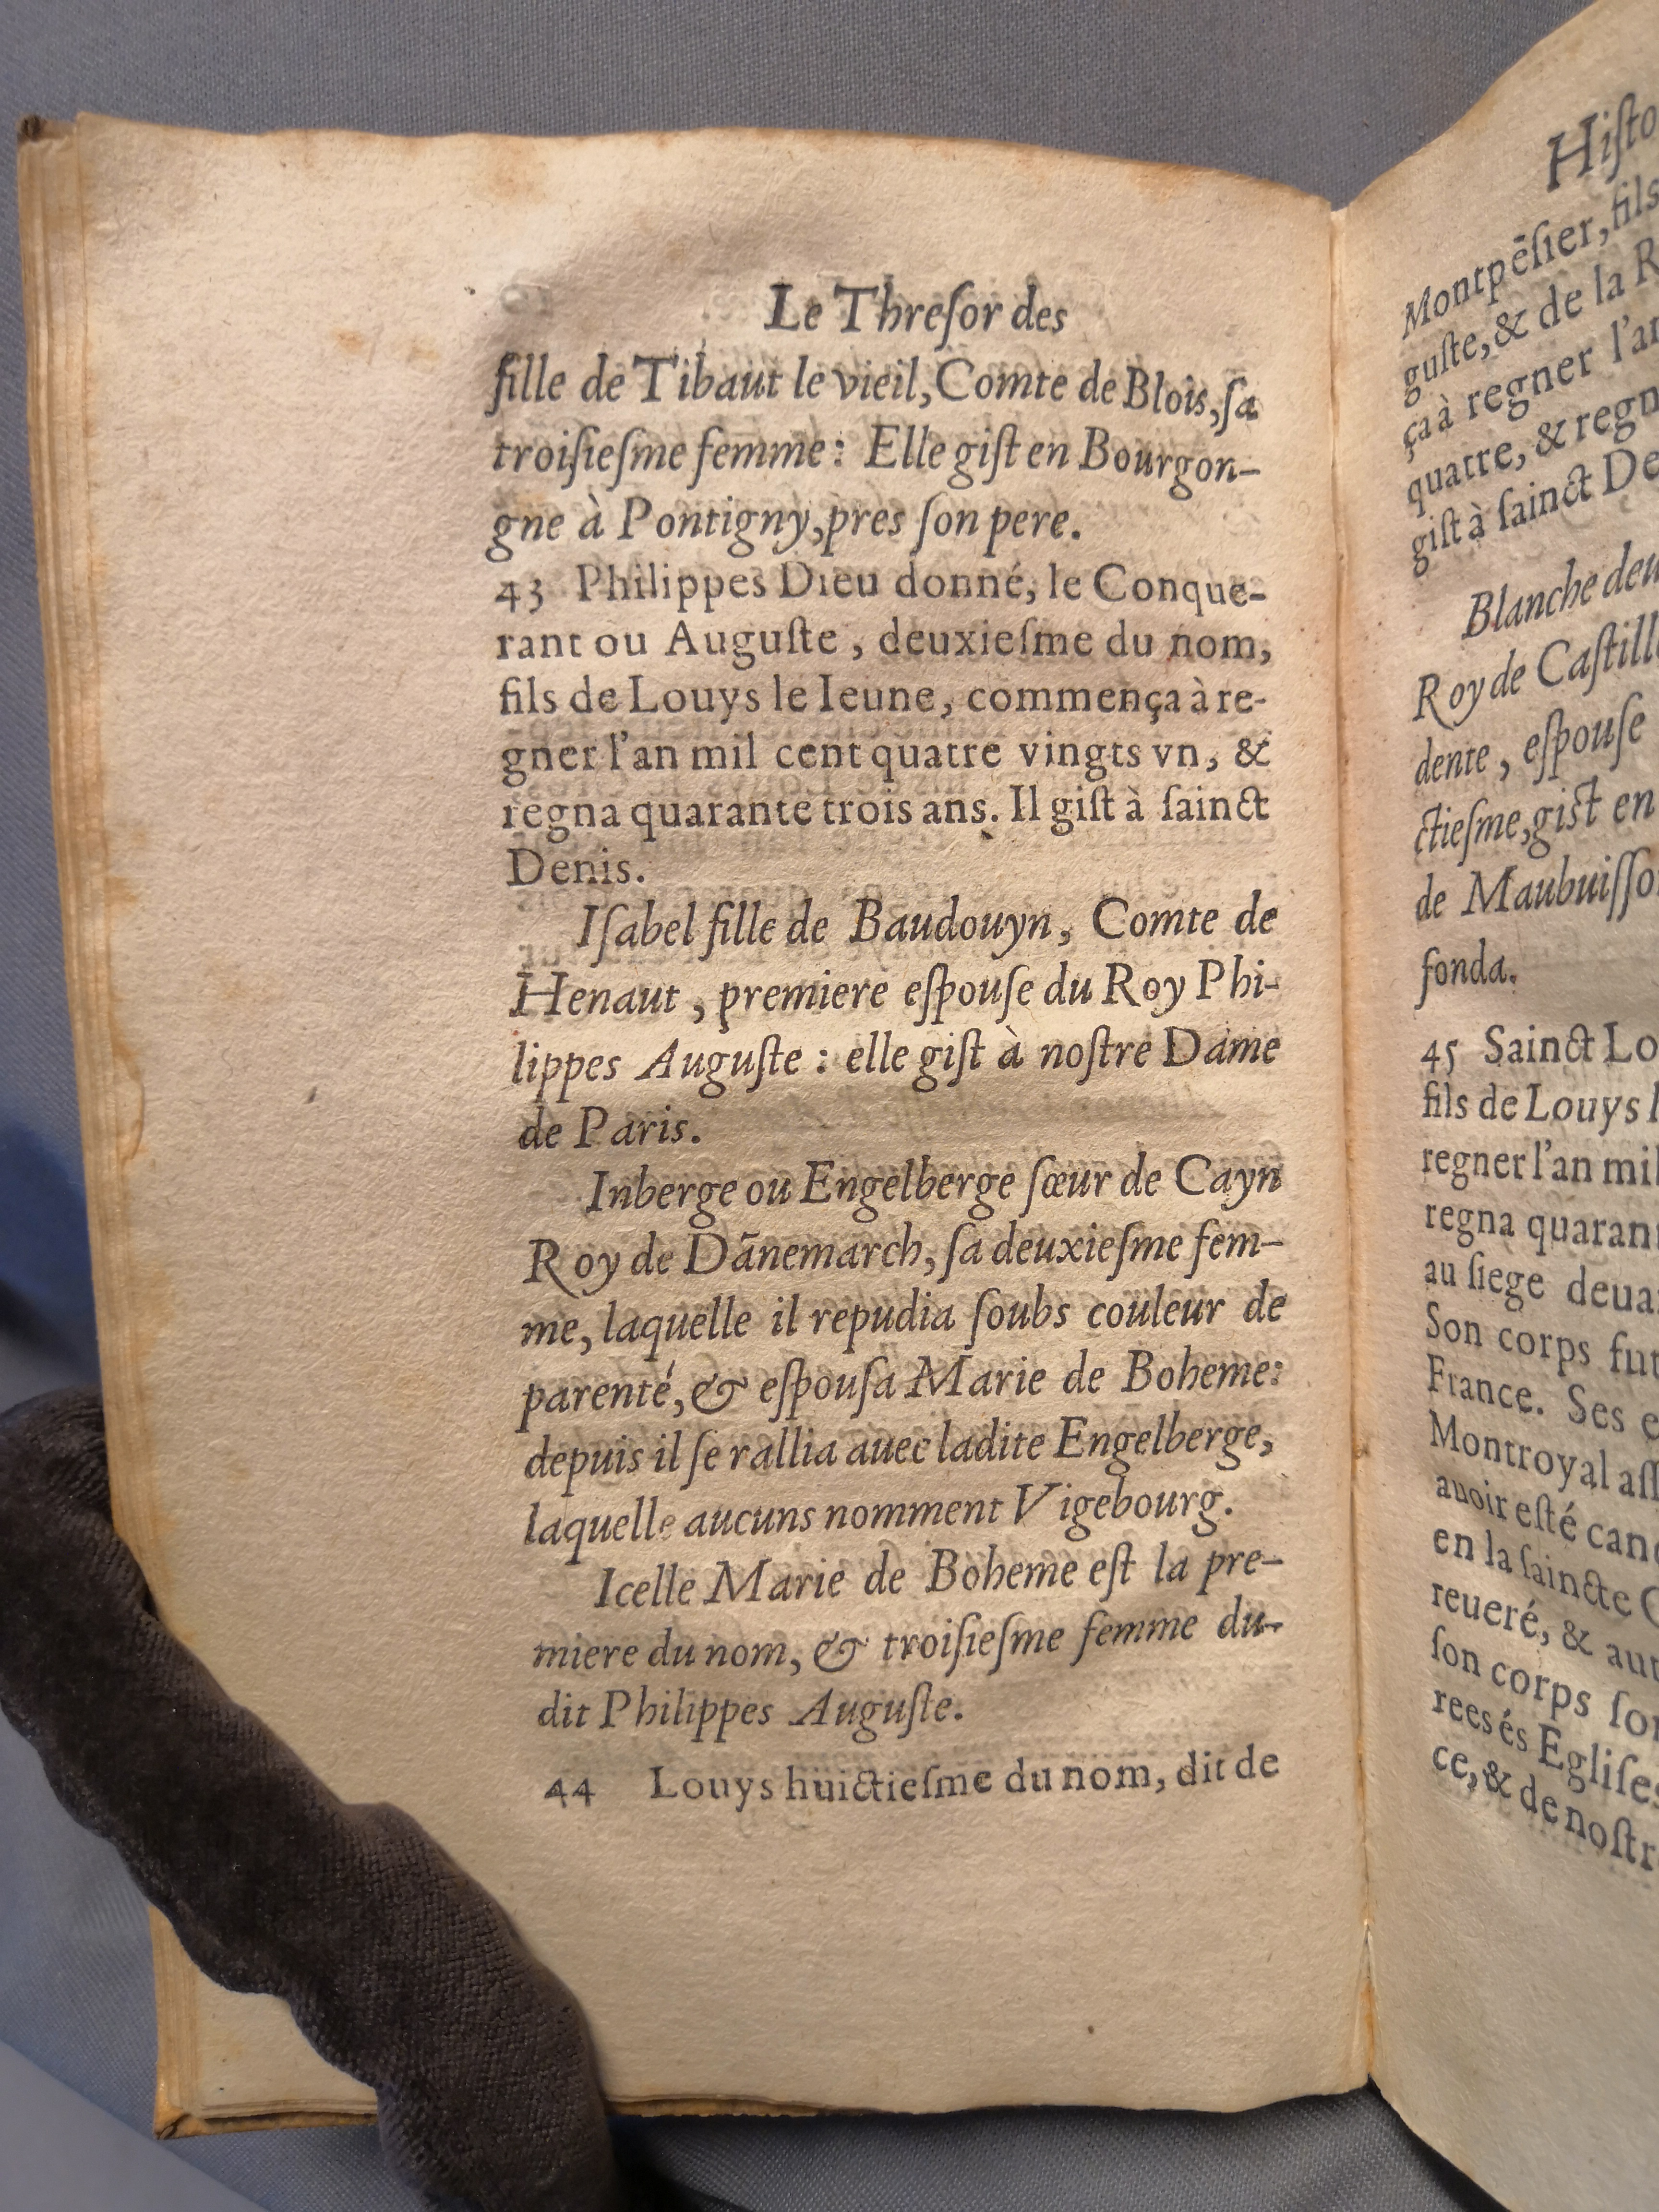 Le Threſor des
fille de Tibaut le vieil, Comte de Blois, ſa
troiſieſme femme : Elle giſt en Bourgon-
gne à Pontigny, pres ſon pere.
43 Philippes Dieu donné, le Conque-
rant ou Auguſte, deuxieſme du nom,
fils de Louys le Ieune, commença à re-
gner l'an mil cent quatre vingts vn, &
regna quarante trois ans. Il giſt à ſainct
Denis.
Iſabel fille de Baudouyn, Comte de
Henaut, premiere eſpouſe du Roy Phi-
lippes Auguſte : elle giſt à noſtre Dame
de Paris.
Inberge ou Engelberge ſœur de Cayn
Roy de Dānemarch, ſa deuxieſme fem-
me, laquelle il repudia ſoubs couleur de
parenté, & eſpouſa Marie de Boheme:
depuis il ſe rallia auec ladite Engelberge,
laquelle aucuns nomment Vigebourg.
Icelle Marie de Boheme eſt la pre-
miere du nom, & troiſieſme femme du-
dit Philippes Auguſte.
44 Louys huictieſme du nom, dit de
Hiſto
Montpēſier, fils
guſte, & de la R
ça à regner l'an
quatre, & regn
giſt à ſainct De
Blanche deu
Roy de Caſtille
dente, eſpouſe
ctieſme, giſt en
de Maubuiſſo
fonda.
45 Sainct Lo
fils de Louys l
regner l'an mil
regna quaran
au ſiege deua
Son corps fut
France. Ses e
Montroyal aſſ
auoir eſté cano
en la ſaincte C
reueré, & aut
ſon corps ſon
rees és Egliſes
ce, & de noſtr